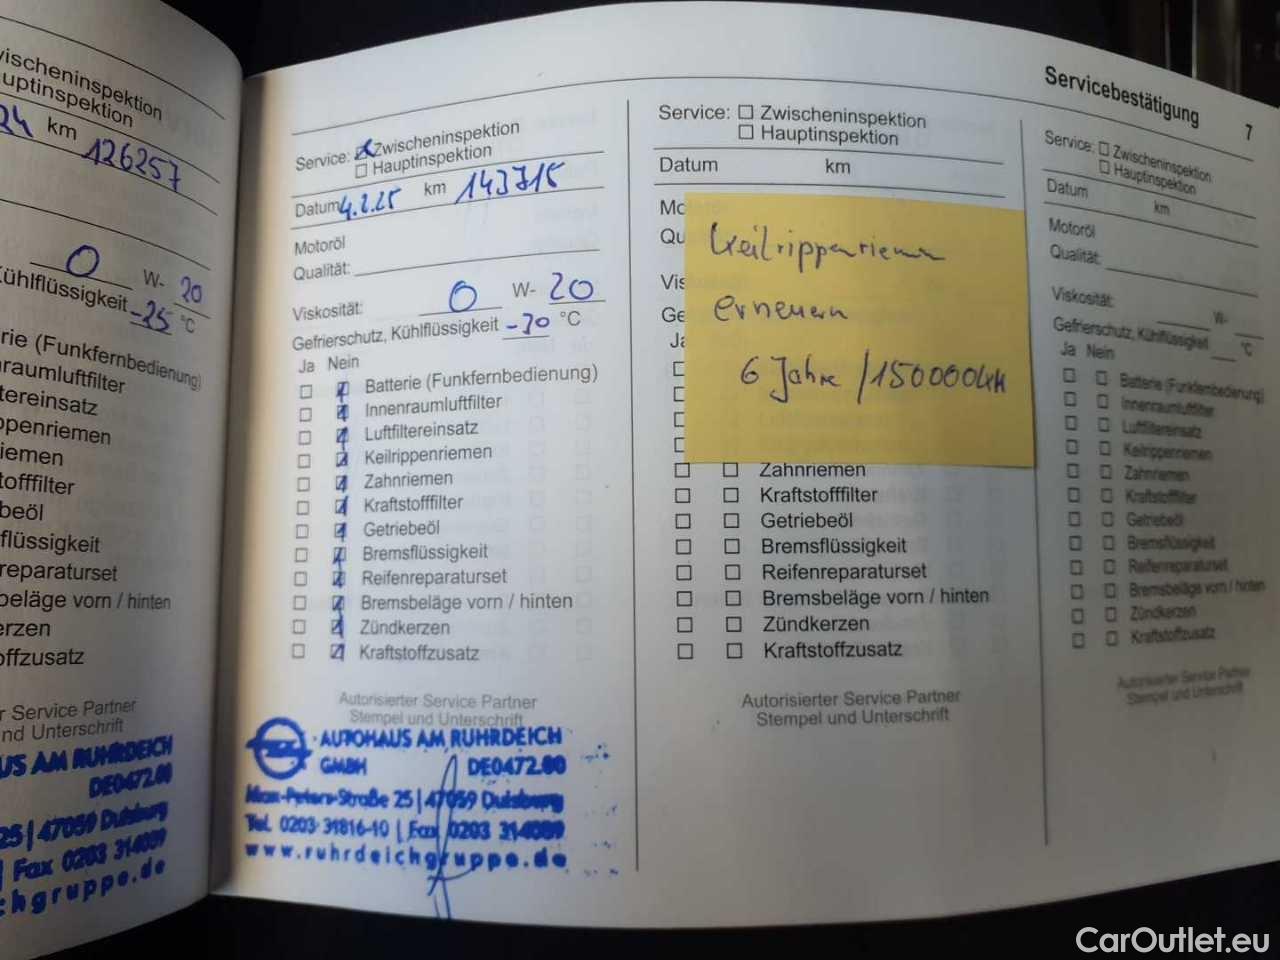 Servicebestätigung 7
wischeninspektion
auptinspektion
24 km 126257
0 W- 20
Kühlflüssigkeit -25 °C
rie (Funkfernbedienung)
nraumluftfilter
ltereinsatz
ppenriemen
iemen
tofffilter
beöl
flüssigkeit
reparaturset
beläge vorn / hinten
erzen
offzusatz
r Service Partner
nd Unterschrift
US AM RUHRDEICH
DE0472.00
25 | 47059 Duisburg
| Fax 0203 314089
chgruppe.de
Service: Zwischeninspektion
Hauptinspektion
Datum 4.2.25 km 143715
Motoröl
Qualität:
Viskosität: 0 W- 20
Gefrierschutz, Kühlflüssigkeit -30 °C
Ja Nein
Batterie (Funkfernbedienung)
Innenraumluftfilter
Luftfiltereinsatz
Keilrippenriemen
Zahnriemen
Kraftstofffilter
Getriebeöl
Bremsflüssigkeit
Reifenreparaturset
Bremsbeläge vorn / hinten
Zündkerzen
Kraftstoffzusatz
Autorisierter Service Partner
Stempel und Unterschrift
AUTOHAUS AM RUHRDEICH
GMBH DE0472.00
Max-Peters-Straße 25 | 47059 Duisburg
Tel. 0203-31816-10 | Fax 0203 314089
www.ruhrdeichgruppe.de
Service: Zwischeninspektion
Hauptinspektion
Datum km
Mo
Qu
Vis
Ge
Ja
Keilrippenriemen
erneuern
6 Jahre / 150000km
Zahnriemen
Kraftstofffilter
Getriebeöl
Bremsflüssigkeit
Reifenreparaturset
Bremsbeläge vorn / hinten
Zündkerzen
Kraftstoffzusatz
Autorisierter Service Partner
Stempel und Unterschrift
Service: Zwischeninspektion
Hauptinspektion
Datum km
Motoröl
Qualität:
Viskosität: W-
Gefrierschutz, Kühlflüssigkeit °C
Ja Nein
Batterie (Funkfernbedienung)
Innenraumluftfilter
Luftfiltereinsatz
Keilrippenriemen
Zahnriemen
Kraftstofffilter
Getriebeöl
Bremsflüssigkeit
Reifenreparaturset
Bremsbeläge vorn / hinten
Zündkerzen
Kraftstoffzusatz
Autorisierter Service Partner
Stempel und Unterschrift
CarOutlet.eu